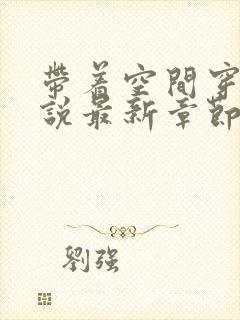 帶着空間穿
說最新章節
劉强